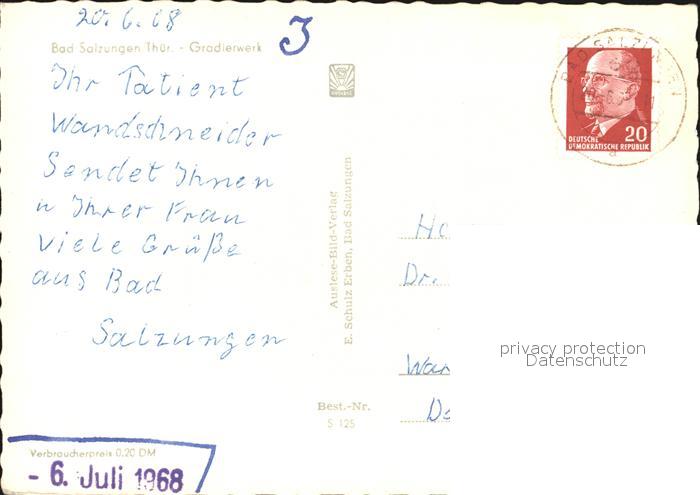 20.6.68
3
Bad Salzungen Thür. - Gradierwerk
Ihr Patient
Wandschneider
Sendet Ihnen
u Ihrer Frau
viele Grüße
aus Bad
Salzungen
Verbraucherpreis 0,20 DM
- 6. Juli 1968
Auslese-Bild-Verlag
E. Schulz Erben, Bad Salzungen
Best.-Nr.
S 125
BAD SALZUNGEN
a
20
DEUTSCHE
DEMOKRATISCHE REPUBLIK
Dr.
privacy protection
Datenschutz